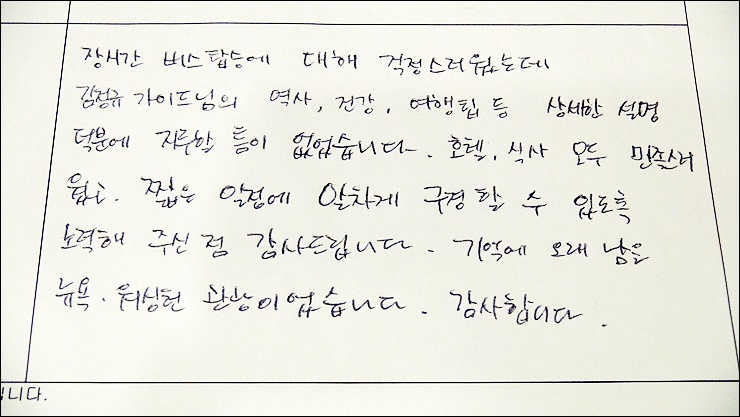 장시간 버스탑승에 대해 걱정스러웠는데
김정규 가이드님의 역사, 건강, 여행팁 등 상세한 설명
덕분에 지루할 틈이 없었습니다. 호텔, 식사 모두 만족스러
웠고. 짧은 일정에 알차게 구경할 수 있도록
노력해 주신 점 감사드립니다. 기억에 오래 남을
뉴욕. 워싱턴 관광이었습니다. 감사합니다.
니다.